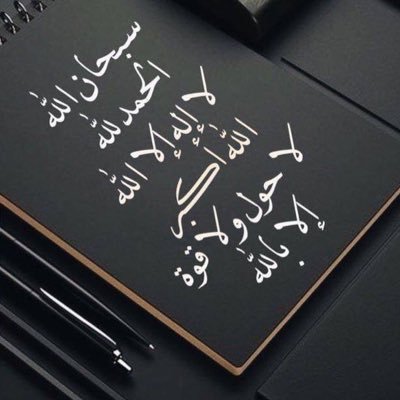 سبحان الله
الحمد لله
لا إله إلا الله
الله أكبر
لا حول ولا قوة
إلا بالله